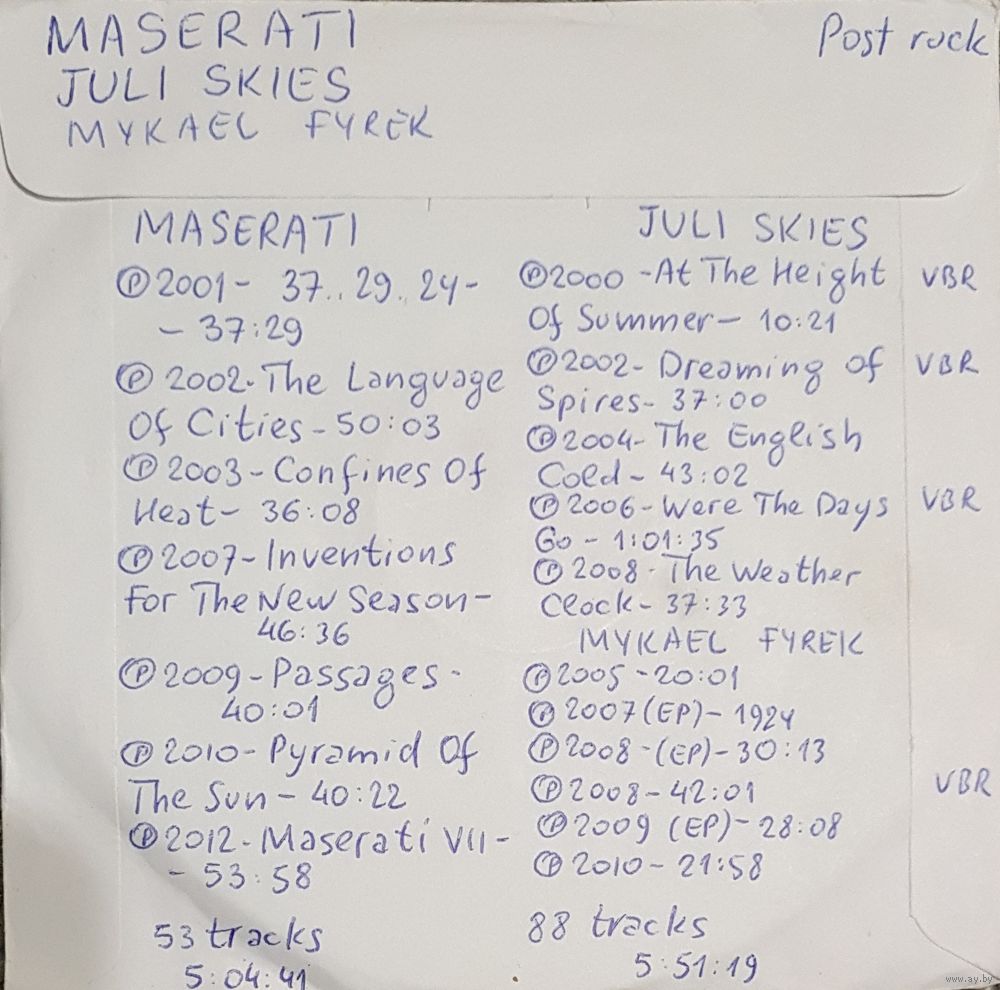 MASERATI
Post rock
JULI SKIES
MYKAEL FYREK
MASERATI
Ⓟ2001- 37..29..24-
- 37:29
Ⓟ 2002-The Language
Of Cities-50:03
Ⓟ 2003-Confines Of
Heat- 36:08
Ⓟ2007-Inventions
For The New Season-
46:36
Ⓟ2009-Passages-
40:01
Ⓟ2010-Pyramid Of
The Sun- 40:22
Ⓟ2012-Maserati VII-
- 53:58
53 tracks
5:04:41
JULI SKIES
Ⓟ2000-At The Height VBR
Of Summer- 10:21
Ⓟ2002-Dreaming of VBR
Spires- 37:00
Ⓟ2004-The English
Cold- 43:02
Ⓟ2006-Were The Days VBR
Go- 1:01:35
Ⓟ 2008-The Weather
Clock- 37:33
MYKAEL FYREK
Ⓟ2005-20:01
Ⓟ 2007(EP)-1924
Ⓟ2008-(EP)-30:13
Ⓟ 2008-42:01 VBR
Ⓟ2009 (EP)-28:08
Ⓟ 2010-21:58
88 tracks
5:51:19
www.ay.by